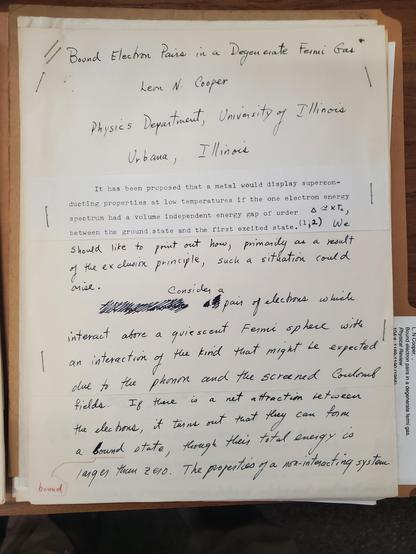 Bound Electron Pairs in a Degenerate Fermi Gas
Leon N. Cooper
Physics Department, University of Illinois
Urbana, Illinois
It has been proposed that a metal would display supercon-
ducting properties at low temperatures if the one electron energy
spectrum had a volume independent energy gap of order Δ ≃ κTc,
between the ground state and the first excited state.(1,2) We
should like to point out how, primarily as a result
of the exclusion principle, such a situation could
arise.
Consider a
pair of electrons which
interact above a quiescent Fermi sphere with
an interaction of the kind that might be expected
due to the phonon and the screened Coulomb
fields. If there is a net attraction between
the electrons, it turns out that they can form
a bound state, though their total energy is
larger than zero. The properties of a non-interacting system
bound
L N Cooper,
Bound electron pairs in a degenerate fermi gas.
Physical Review